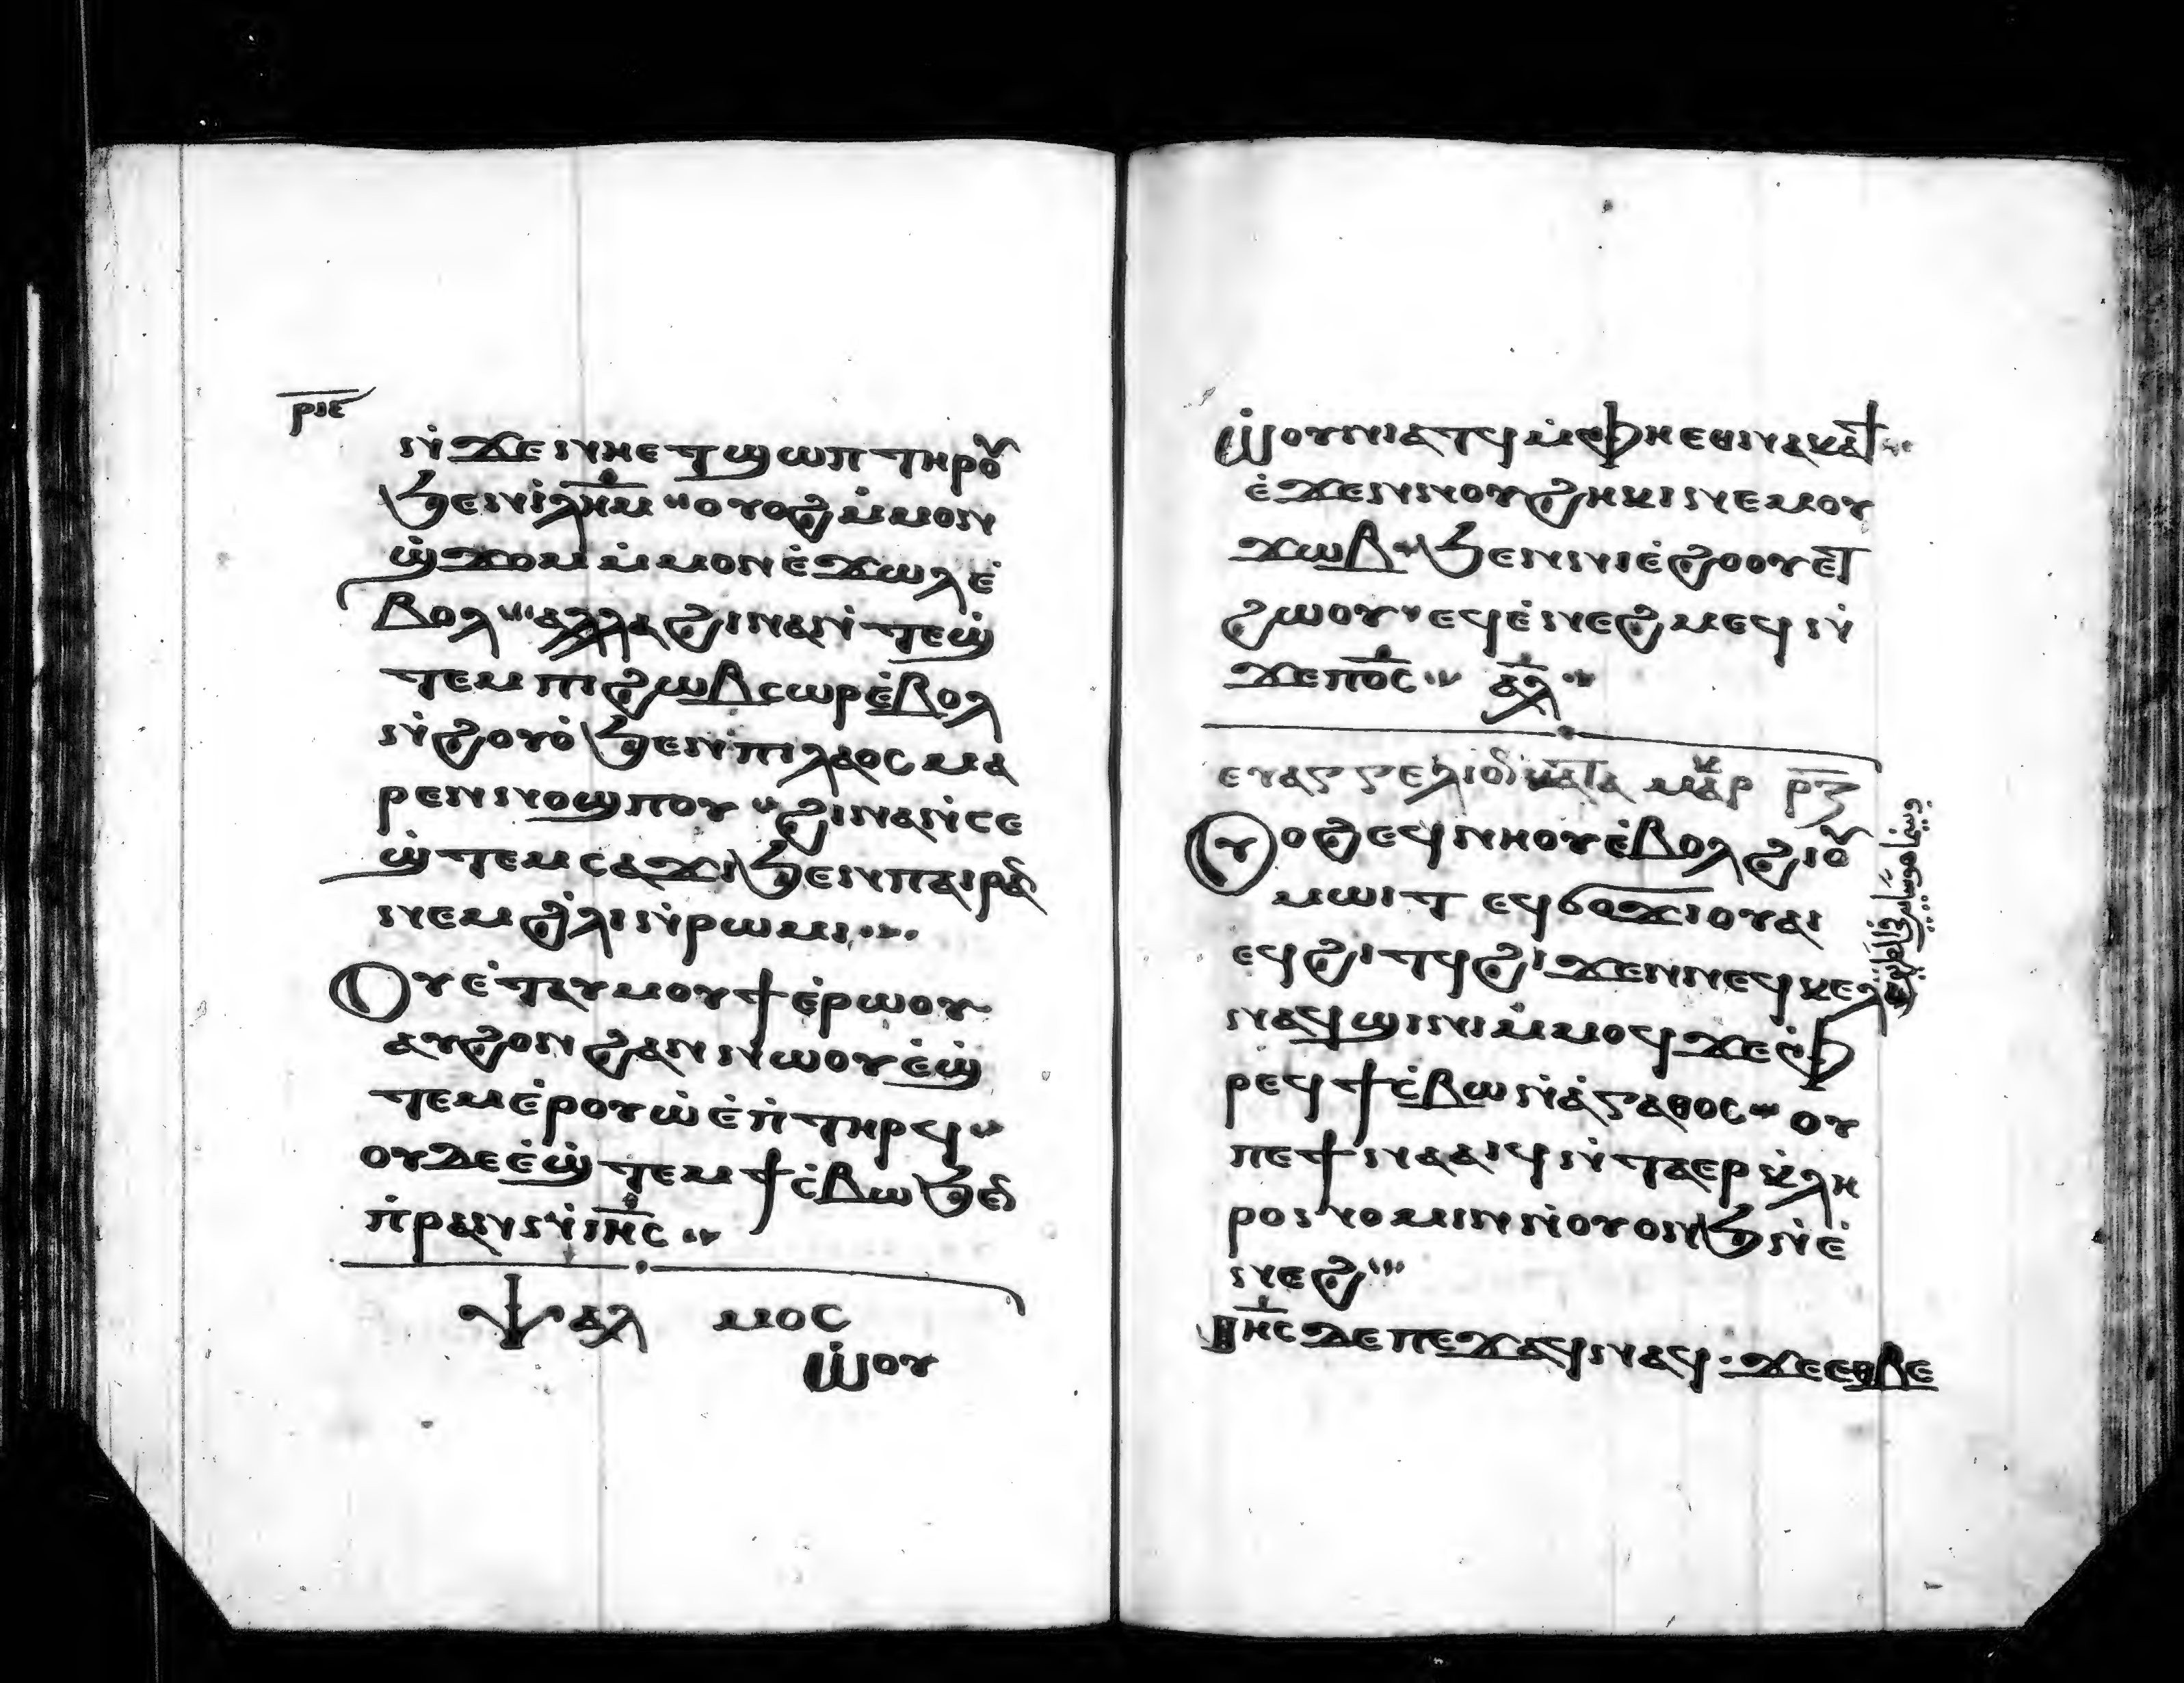 ⲣⲓⲉ
ⲛ̇ϫⲉⲛⲏⲉⲧϣⲱⲡ ⲧⲏⲣⲟⲩ
ϧⲉⲛⲓ̇ⲗ̅ⲏ̅ⲙ̅ ⲟⲩⲟϩ ⲙ̇ⲙⲟⲛ
ϣ̇ϫⲟⲙ ⲙ̇ⲙⲟⲛ ⲉ̇ϫⲱⲗ ⲉ̇
ⲃⲟⲗ ⲁⲗⲗⲁ ϩⲓⲛⲁ ⲛ̇ⲧⲉϣ̇
ⲧⲉⲙ ⲡⲓϩⲱⲃ ⲥⲱⲣ ⲉ̇ⲃⲟⲗ
ⲛ̇ϩⲟⲩⲟ̇ ϧⲉⲛ ⲡⲓⲗⲁⲟⲥ ⲙⲁ
ⲣⲉⲛⲛⲟϣⲡⲟⲩ ϩⲓⲛⲁ ⲛ̇ⲥⲉ
ϣ̇ⲧⲉⲙⲥⲁϫⲓ ϧⲉⲛ ⲡⲁⲓⲣⲁⲛ
ⲛⲉⲙ ϩ̇ⲗⲓ ⲛ̇ⲣⲱⲙⲓ
Ⲟⲩ ⲉ̇ⲧⲁⲩⲙⲟⲩϯ ⲉ̇ⲣⲱⲟⲩ
ⲁⲩϩⲟⲛϩⲁⲛ ⲛⲱⲟⲩ ⲉ̇ϣ̇
ⲧⲉⲙⲉ̇ⲣⲟⲩⲱ̇ ⲉ̇ⲡ̇ⲧⲏⲣϥ
ⲟⲩⲇⲉ ⲉ̇ϣ̇ⲧⲉⲙϯⲥ̇ⲃⲱ ϧⲉⲛ
ⲡ̇ⲣⲁⲛ ⲛ̇ⲓ̅ⲏ̅ⲥ̅
ⲯⲁⲗ ⲙⲟⲥ
ⲱ̇ⲟⲩ
ⲱ̇ⲟⲩⲛⲓⲁⲧϥ ⲙ̇ⲫⲏ ⲉⲑⲛⲁⲕⲁϯ
ⲉ̇ϫⲉⲛ ⲛⲟⲩϩⲏⲕⲓ ⲛⲉⲙ ⲟⲩ
ϫⲱⲃ ϧⲉⲛ ⲛⲓⲉ̇ϩⲟⲟⲩ ⲉⲧ
ϩⲱⲟⲩ ⲉϥⲉ̇ⲛⲉϩⲙⲉϥ ⲛ̇
ϫⲉ ⲡ̅ⲟ̅ⲥ̅ ⲁ̅ⲗ̅
ⲉⲩⲁⲅⲅⲉⲗⲓⲟⲛ ⲕⲁⲧⲁ ⲙⲁⲣⲕ ⲣⲍ
Ⲟⲩⲟϩ ⲉϥⲛⲏⲟⲩ ⲉ̇ⲃⲟⲗ ϩⲓ ⲟⲩ
ⲙⲱⲓⲧ ⲉϥϭⲟϫⲓ ⲟⲩⲁⲓ
ⲉϥϩⲓⲧϥ ϩⲓϫⲉⲛ ⲛⲉϥⲕⲉⲗⲓ
ⲛⲁϥϣⲓⲛⲓ ⲙ̇ⲙⲟϥ ϫⲉ ⲫ̇
ⲣⲉϥϯⲥ̇ⲃⲱ ⲛ̇ⲁ̇ⲅⲁⲑⲟⲥ ⲟⲩ
ⲡⲉϯⲛⲁⲁⲓϥ ⲛ̇ⲧⲁⲉⲣⲕ̇ⲗⲏ
ⲣⲟⲛⲟⲙⲓⲛ ⲛ̇ⲟⲩⲟⲛϧ ⲛ̇ⲉ̇
ⲛⲉϩ
Ⲓ̅ⲏ̅ⲥ̅ ⲇⲉ ⲡⲉϫⲁϥ ⲛⲁϥ ϫⲉ ⲉⲑⲃⲉ
وبينما هو سائر في الطريق